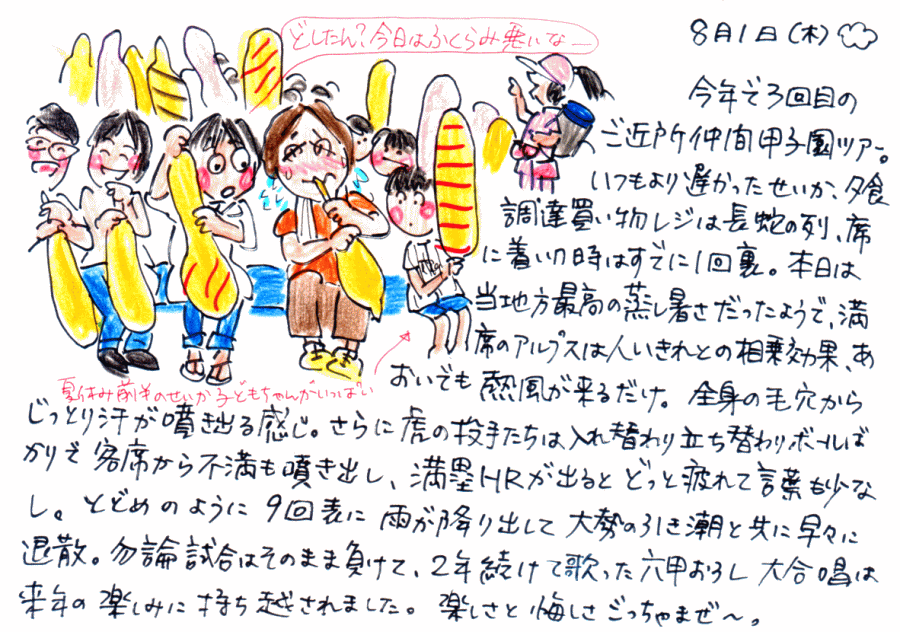 どしたん?今日はふくらみ悪いなー
8月1日(木)
今年で3回目の
ご近所仲間甲子園ツアー。
いつもより遅かったせいか、夕食
調達買い物レジは長蛇の列、席
に着いた時はすでに1回裏。本日は
当地方最高の蒸し暑さだったようで、満
席のアルプスは人いきれとの相乗効果、あ
おいでも熱風が来るだけ。全身の毛穴から
じっとり汗が噴き出る感じ。さらに虎の投手たちは入れ替わり立ち替わりボールば
かりで客席から不満も噴き出し、満塁HRが出るとどっと疲れて言葉も少な
し。とどめのように9回表に雨が降り出して大勢の引き潮と共に早々に
退散。勿論試合はそのまま負けて、2年続けて歌った六甲おろし大合唱は
来年の楽しみに持ち越されました。楽しさと悔しさごっちゃまぜ〜。
夏休み前半のせいか子どもちゃんがいっぱい